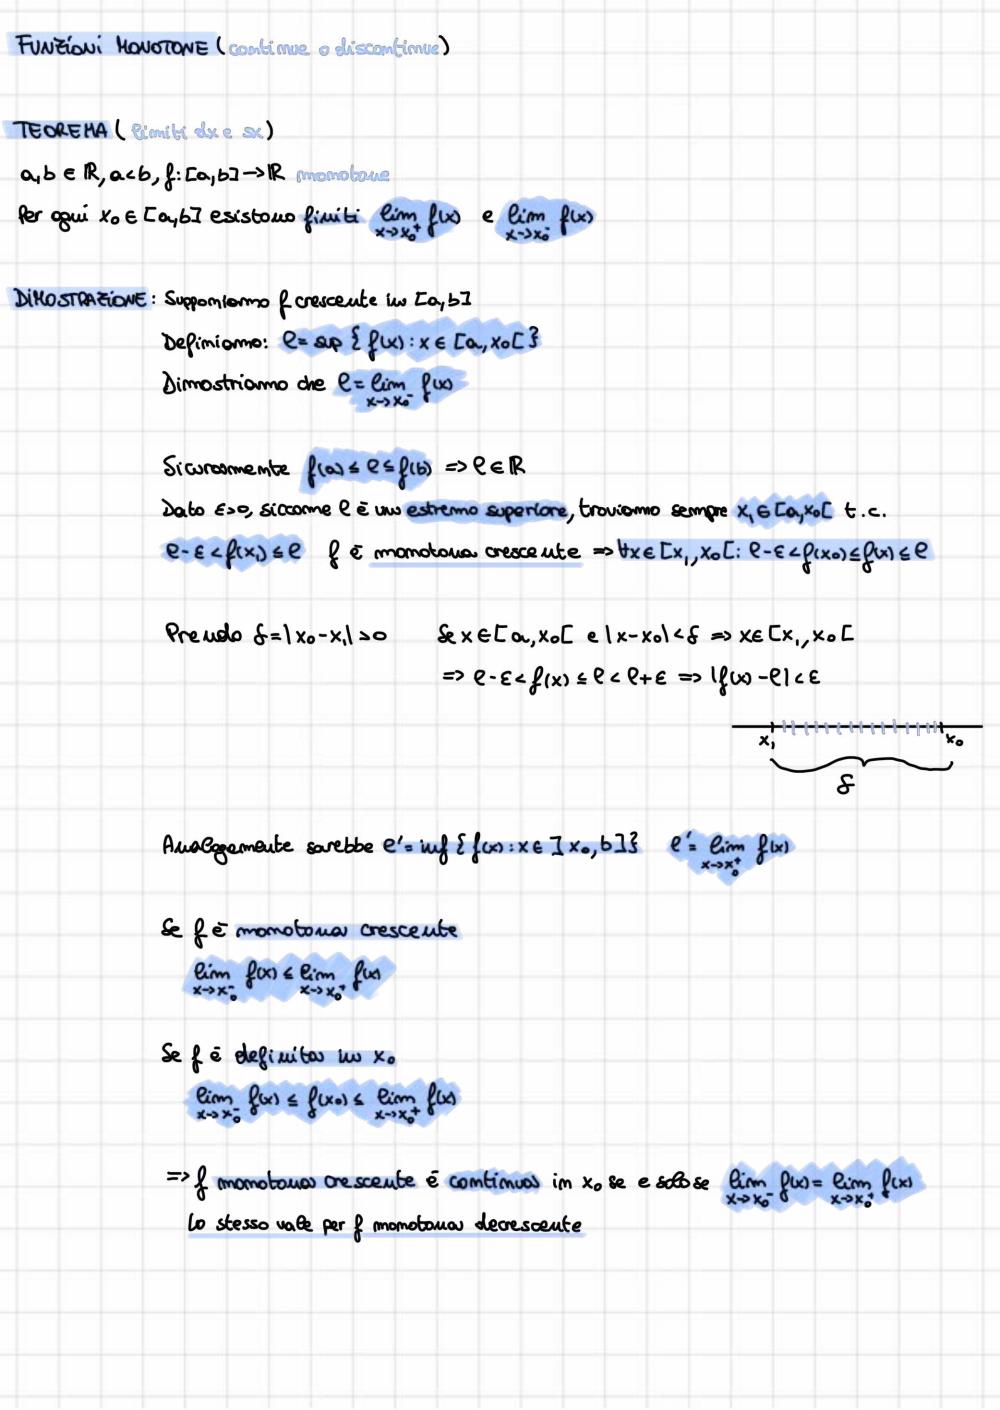 FUNZIONI MONOTONE (continue o discontinue)
TEOREMA (limiti dx e sx)
a,b ∈ ℝ, a<b, f: [a,b] → ℝ monotone
Per ogni x₀ ∈ [a,b] esistono finiti lim x→x₀⁺ f(x) e lim x→x₀⁻ f(x)
DIMOSTRAZIONE: Supponiamo f crescente in [a,b]
Definiamo: ℓ = sup { f(x) : x ∈ [a, x₀[ }
Dimostriamo che ℓ = lim x→x₀⁻ f(x)
Sicuramente f(a) ≤ ℓ ≤ f(b) => ℓ ∈ ℝ
Dato ε>0, siccome ℓ è un estremo superiore, troviamo sempre x₁ ∈ [a,x₀[ t.c.
ℓ-ε < f(x₁) ≤ ℓ f è monotona crescente => ∀x ∈ [x₁, x₀[ : ℓ-ε < f(x₀) ≤ f(x) ≤ ℓ
Prendo δ = |x₀-x₁| >0 Se x ∈ [a, x₀[ e |x-x₀| < δ => x ∈ [x₁, x₀[
=> ℓ-ε < f(x) ≤ ℓ < ℓ+ε => |f(x)-ℓ| < ε
x₁ x₀
δ
Analogamente sarebbe ℓ' = inf { f(x) : x ∈ ]x₀, b] } ℓ' = lim x→x₀⁺ f(x)
Se f è monotona crescente
lim x→x₀⁻ f(x) ≤ lim x→x₀⁺ f(x)
Se f è definita in x₀
lim x→x₀⁻ f(x) ≤ f(x₀) ≤ lim x→x₀⁺ f(x)
=> f monotona crescente è continua in x₀ se e solo se lim x→x₀⁻ f(x) = lim x→x₀⁺ f(x)
Lo stesso vale per f monotona decrescente